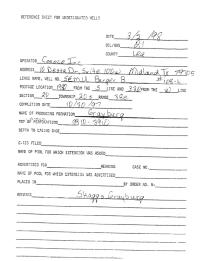 REFERENCE SHEET FOR UNDESIGNATED WELLS
DATE 3/5/98
OIL/GAS
COUNTY Lea
OPERATOR Conoco Inc
ADDRESS 10 Desta Dr. Suite 100W Midland Tx 79705
LEASE NAME, WELL NO. SEMU Burger B
FOOTAGE LOCATION FROM THE S LINE AND FROM THE W LINE
SECTION 20 TOWNSHIP 20s RANGE
COMPLETION DATE 10/30/97
NAME OF PRODUCING FORMATION Grayburg
TOP OF PERFORATIONS
DEPTH TO CASING SHOE
C-123 FILED
NAME OF POOL FOR WHICH EXTENSION WAS ASKED
ADVERTISED FOR HEARING CASE NO.
NAME OF POOL FOR WHICH EXTENSION WAS ADVERTISED
PLACED IN BY ORDER NO. R-
REMARKS Skaggs Grayburg